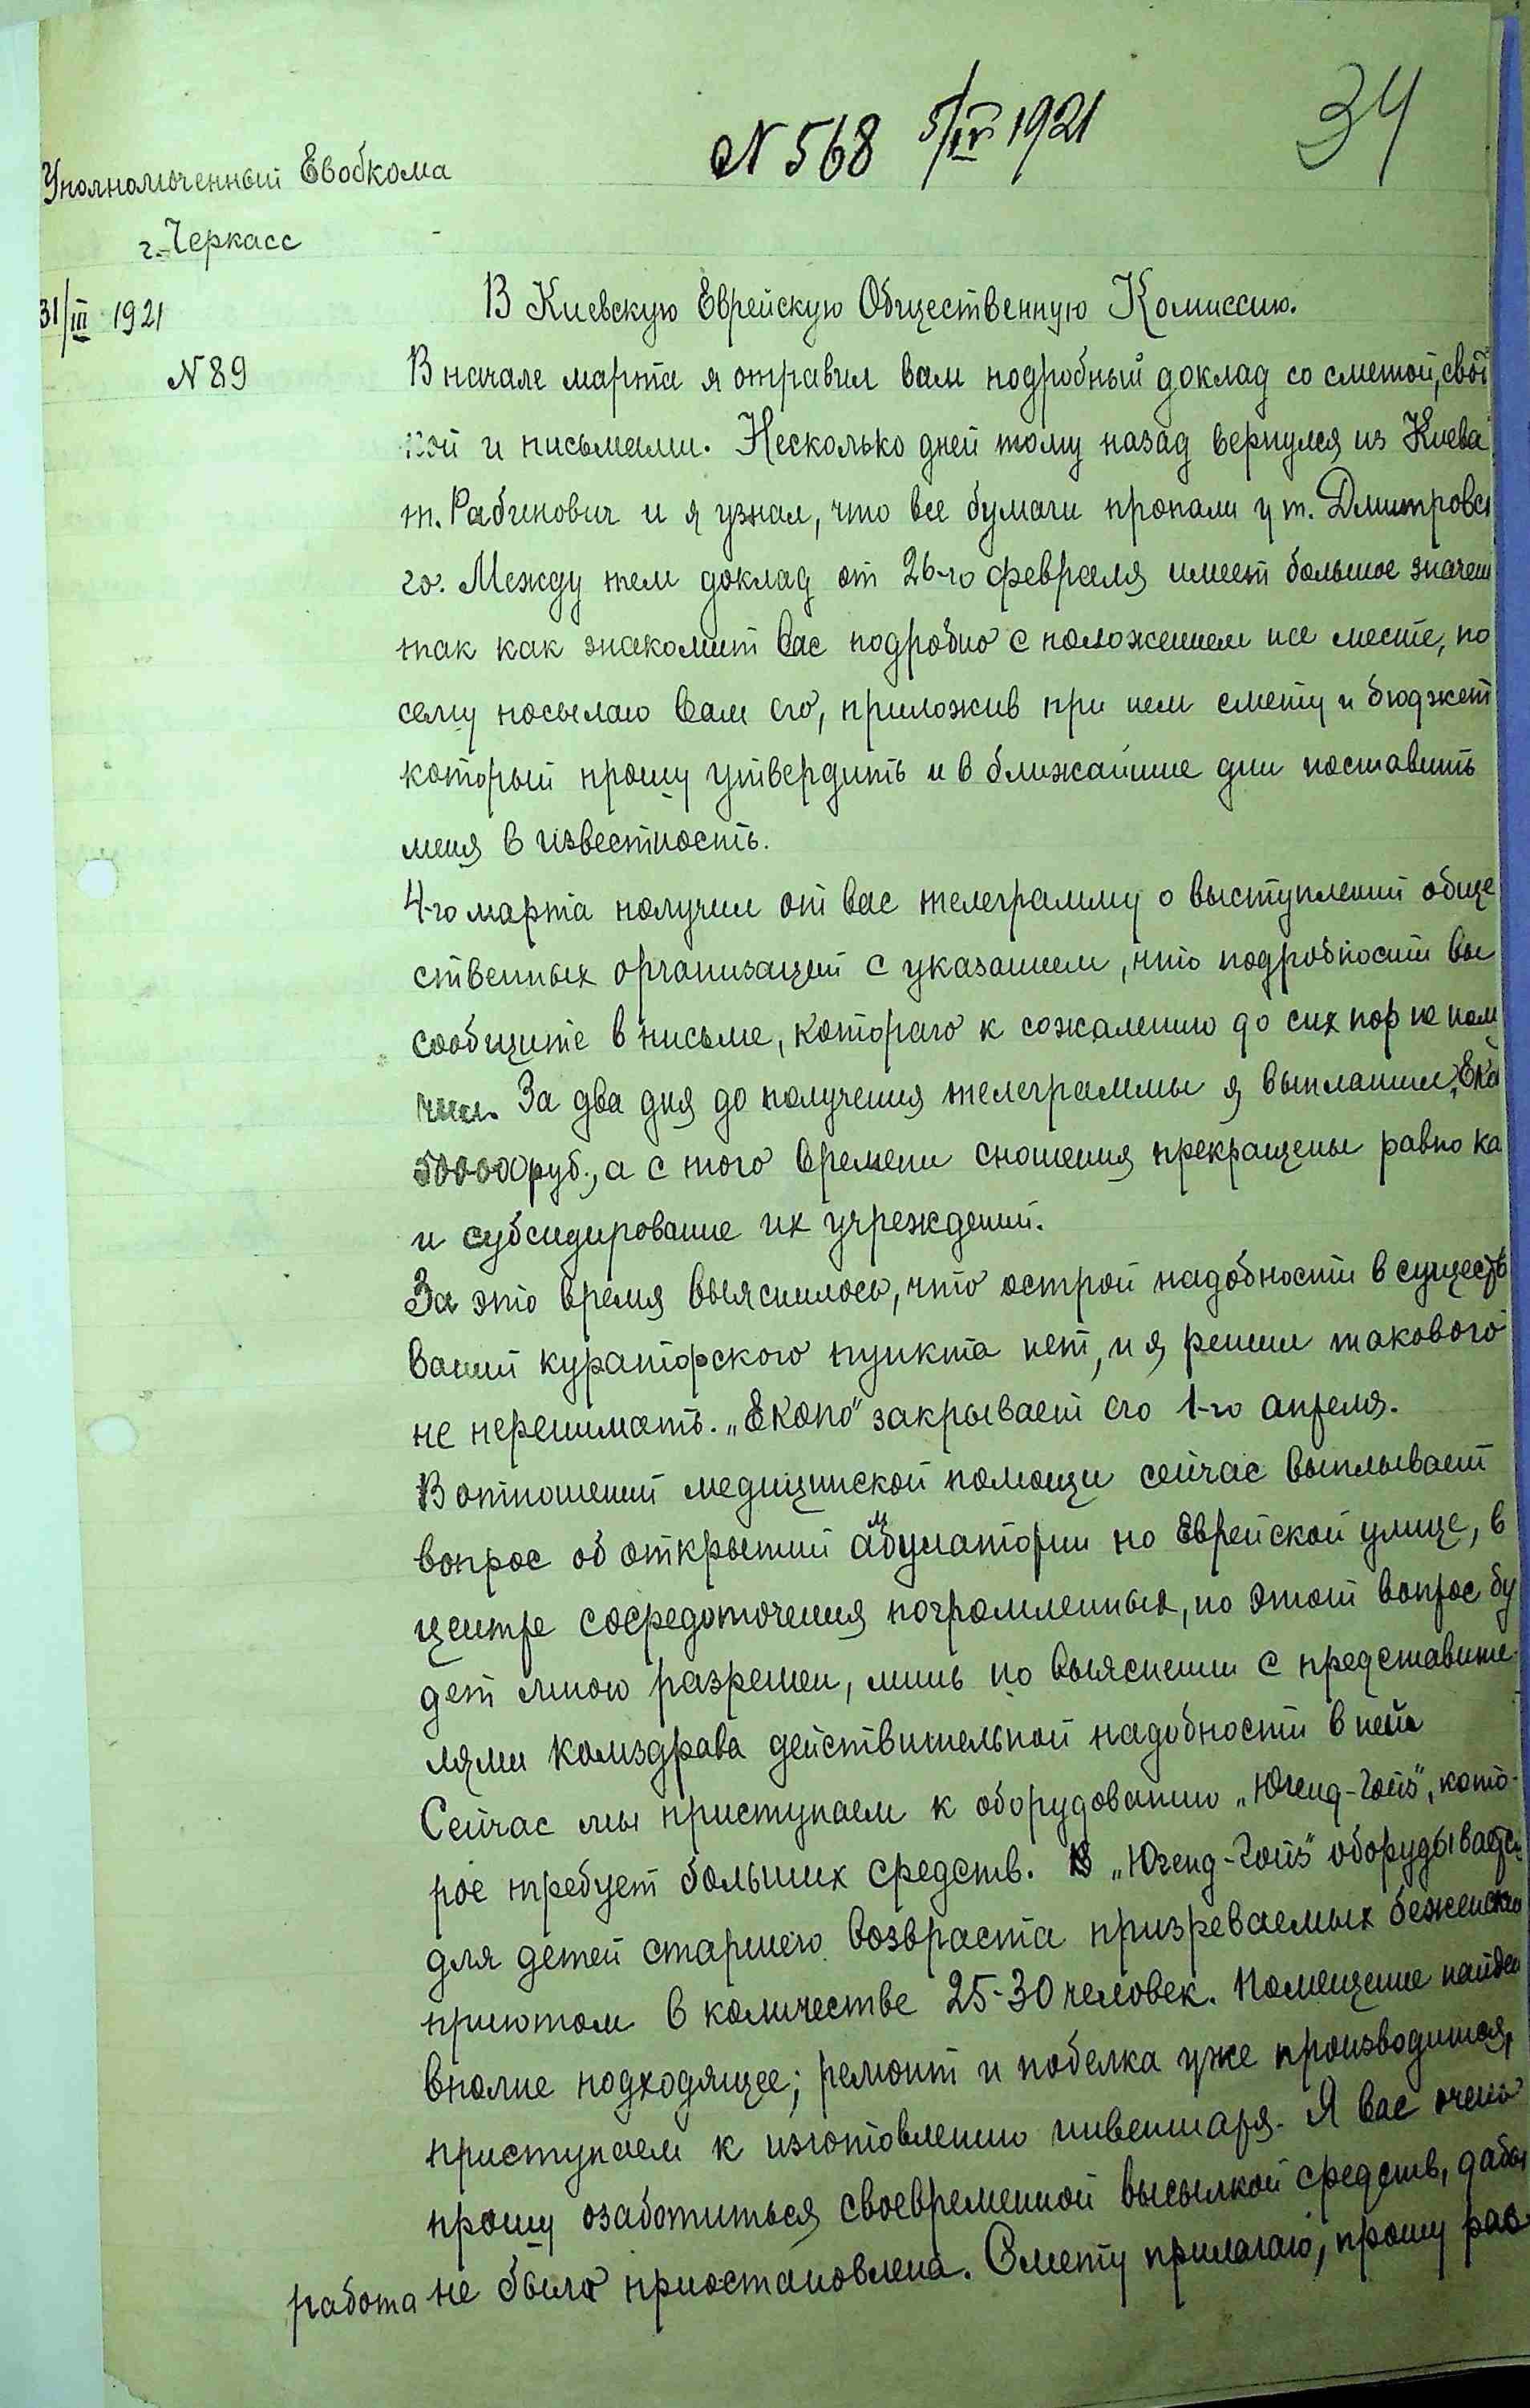 34
N 568 5/IV 1921
Уполномоченный Евобкома
г. Черкасс
31/III 1921
N 89
В Киевскую Еврейскую Общественную Комиссию.
В начале марта я отправил вам подробный доклад со сметой, свод
кой и письмами. Несколько дней тому назад вернулся из Киева
т. Рабинович и я узнал, что все бумаги пропали у т. Дмитровск
го. Между тем доклад от 26-го февраля имеет большое значен
так как знакомит вас подробно с положением на месте, по
сему посылаю вам его, приложив при нем смету и бюджет
который прошу утвердить и в ближайшие дни поставить
меня в известность.
4-го марта получил от вас телеграмму о выступлении обще
ственных организаций с указанием, что подробности вы
сообщите в письме, котораго к сожалению до сих пор не пол
чил. За два дня до получения телеграммы я выплатил „Еко
500000 руб., а с того времени сношения прекращены равно ка
и субсидирование их учреждений.
За это время выяснилось, что острой надобности в существ
вании кураторского пункта нет, и я решил такового
не перенимать. „Екопо" закрывает его 1-го апреля.
В отношении медицинской помощи сейчас выплывает
вопрос об открытии амбулатории по Еврейской улице, в
центре сосредоточения погромленных, но этот вопрос бу
дет мною разрешен, лишь по выяснении с представите-
лями комздрава действительной надобности в ней.
Сейчас мы приступаем к оборудованию „Югенд-Гойз", кото-
рое требует больших средств. „Югенд-Гойз" оборудывается
для детей старшего возвраста призреваемых беженским
приютом в количестве 25-30 человек. Помещение найден
вполне подходящее; ремонт и побелка уже производится,
приступаем к изготовлению инвентаря. Я вас очень
прошу озаботиться своевременной высылкой средств, дабы
работа не была приостановлена. Смету прилагаю, прошу рас-